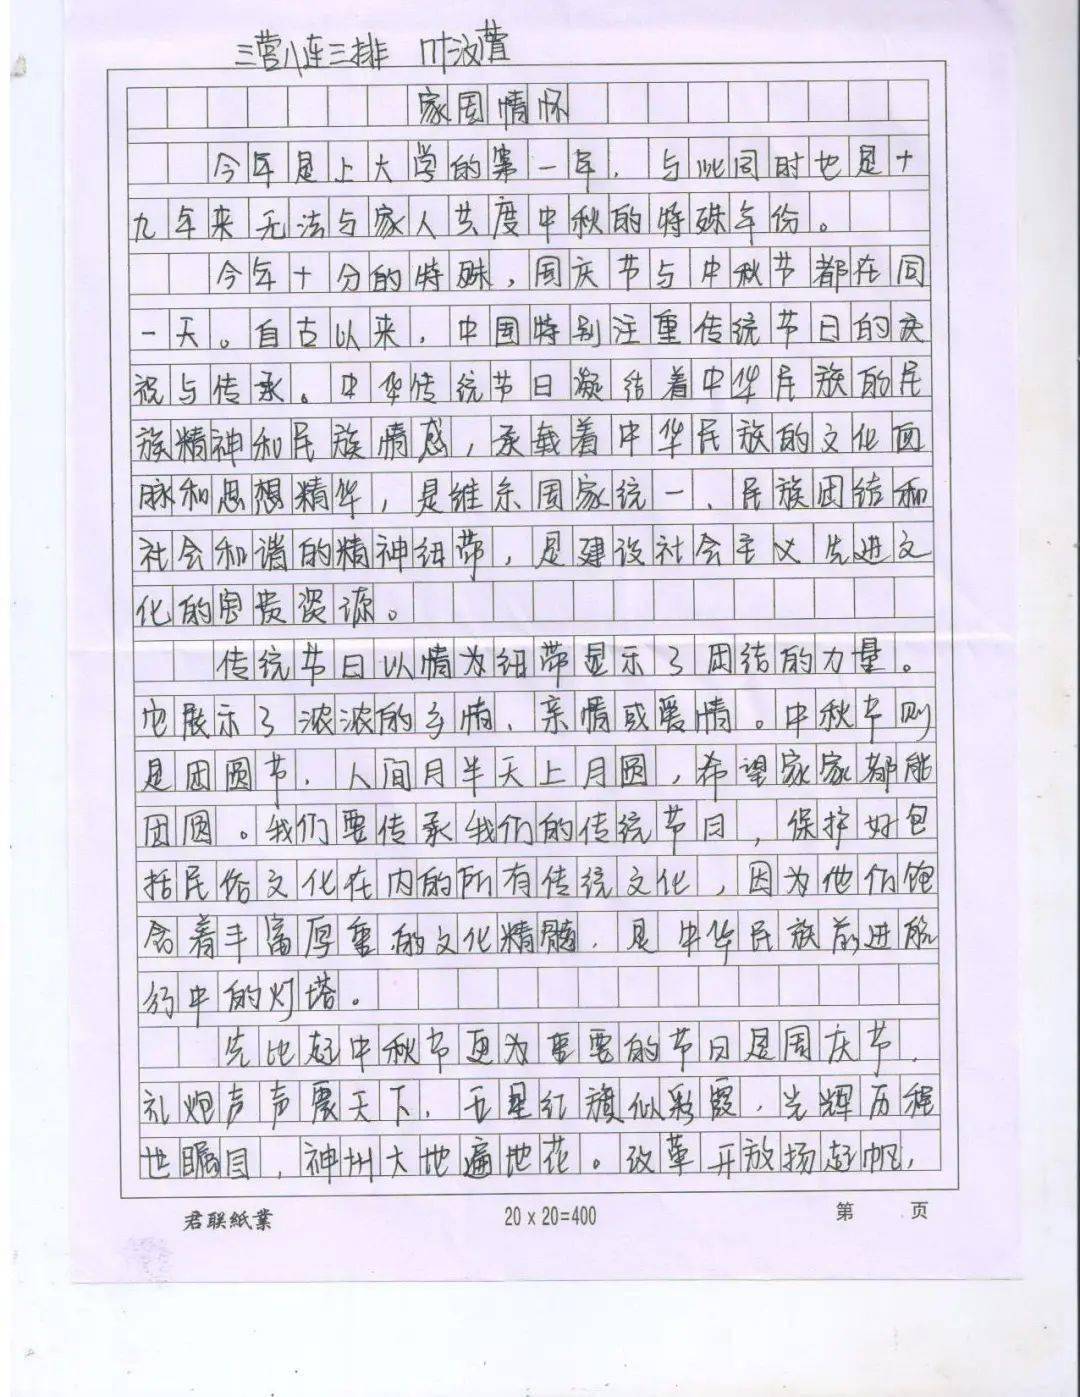 三营八连三排 叶汶萱
家国情怀
今年是上大学的第一年,与此同时也是十
九年来无法与家人共度中秋的特殊年份。
今年十分的特殊,国庆节与中秋节都在同
一天。自古以来,中国特别注重传统节日的庆
祝与传承。中华传统节日凝结着中华民族的民
族精神和民族情感,承载着中华民族的文化血
脉和思想精华,是维系国家统一、民族团结和
社会和谐的精神纽带,是建设社会主义先进文
化的宝贵资源。
传统节日以情为纽带显示了团结的力量。
它展示了浓浓的乡情、亲情或爱情。中秋节则
是团圆节,人间月半天上月圆,希望家家都能
团圆。我们要传承我们的传统节日,保护好包
括民俗文化在内的所有传统文化,因为他们饱
含着丰富厚重的文化精髓,是中华民族前进航
行中的灯塔。
先比起中秋节更为重要的节日是国庆节,
礼炮声声震天下,五星红旗似彩霞,光辉历程
世瞩目,神州大地遍地花。改革开放扬起帆,
君联纸業
20 x 20=400
第 页